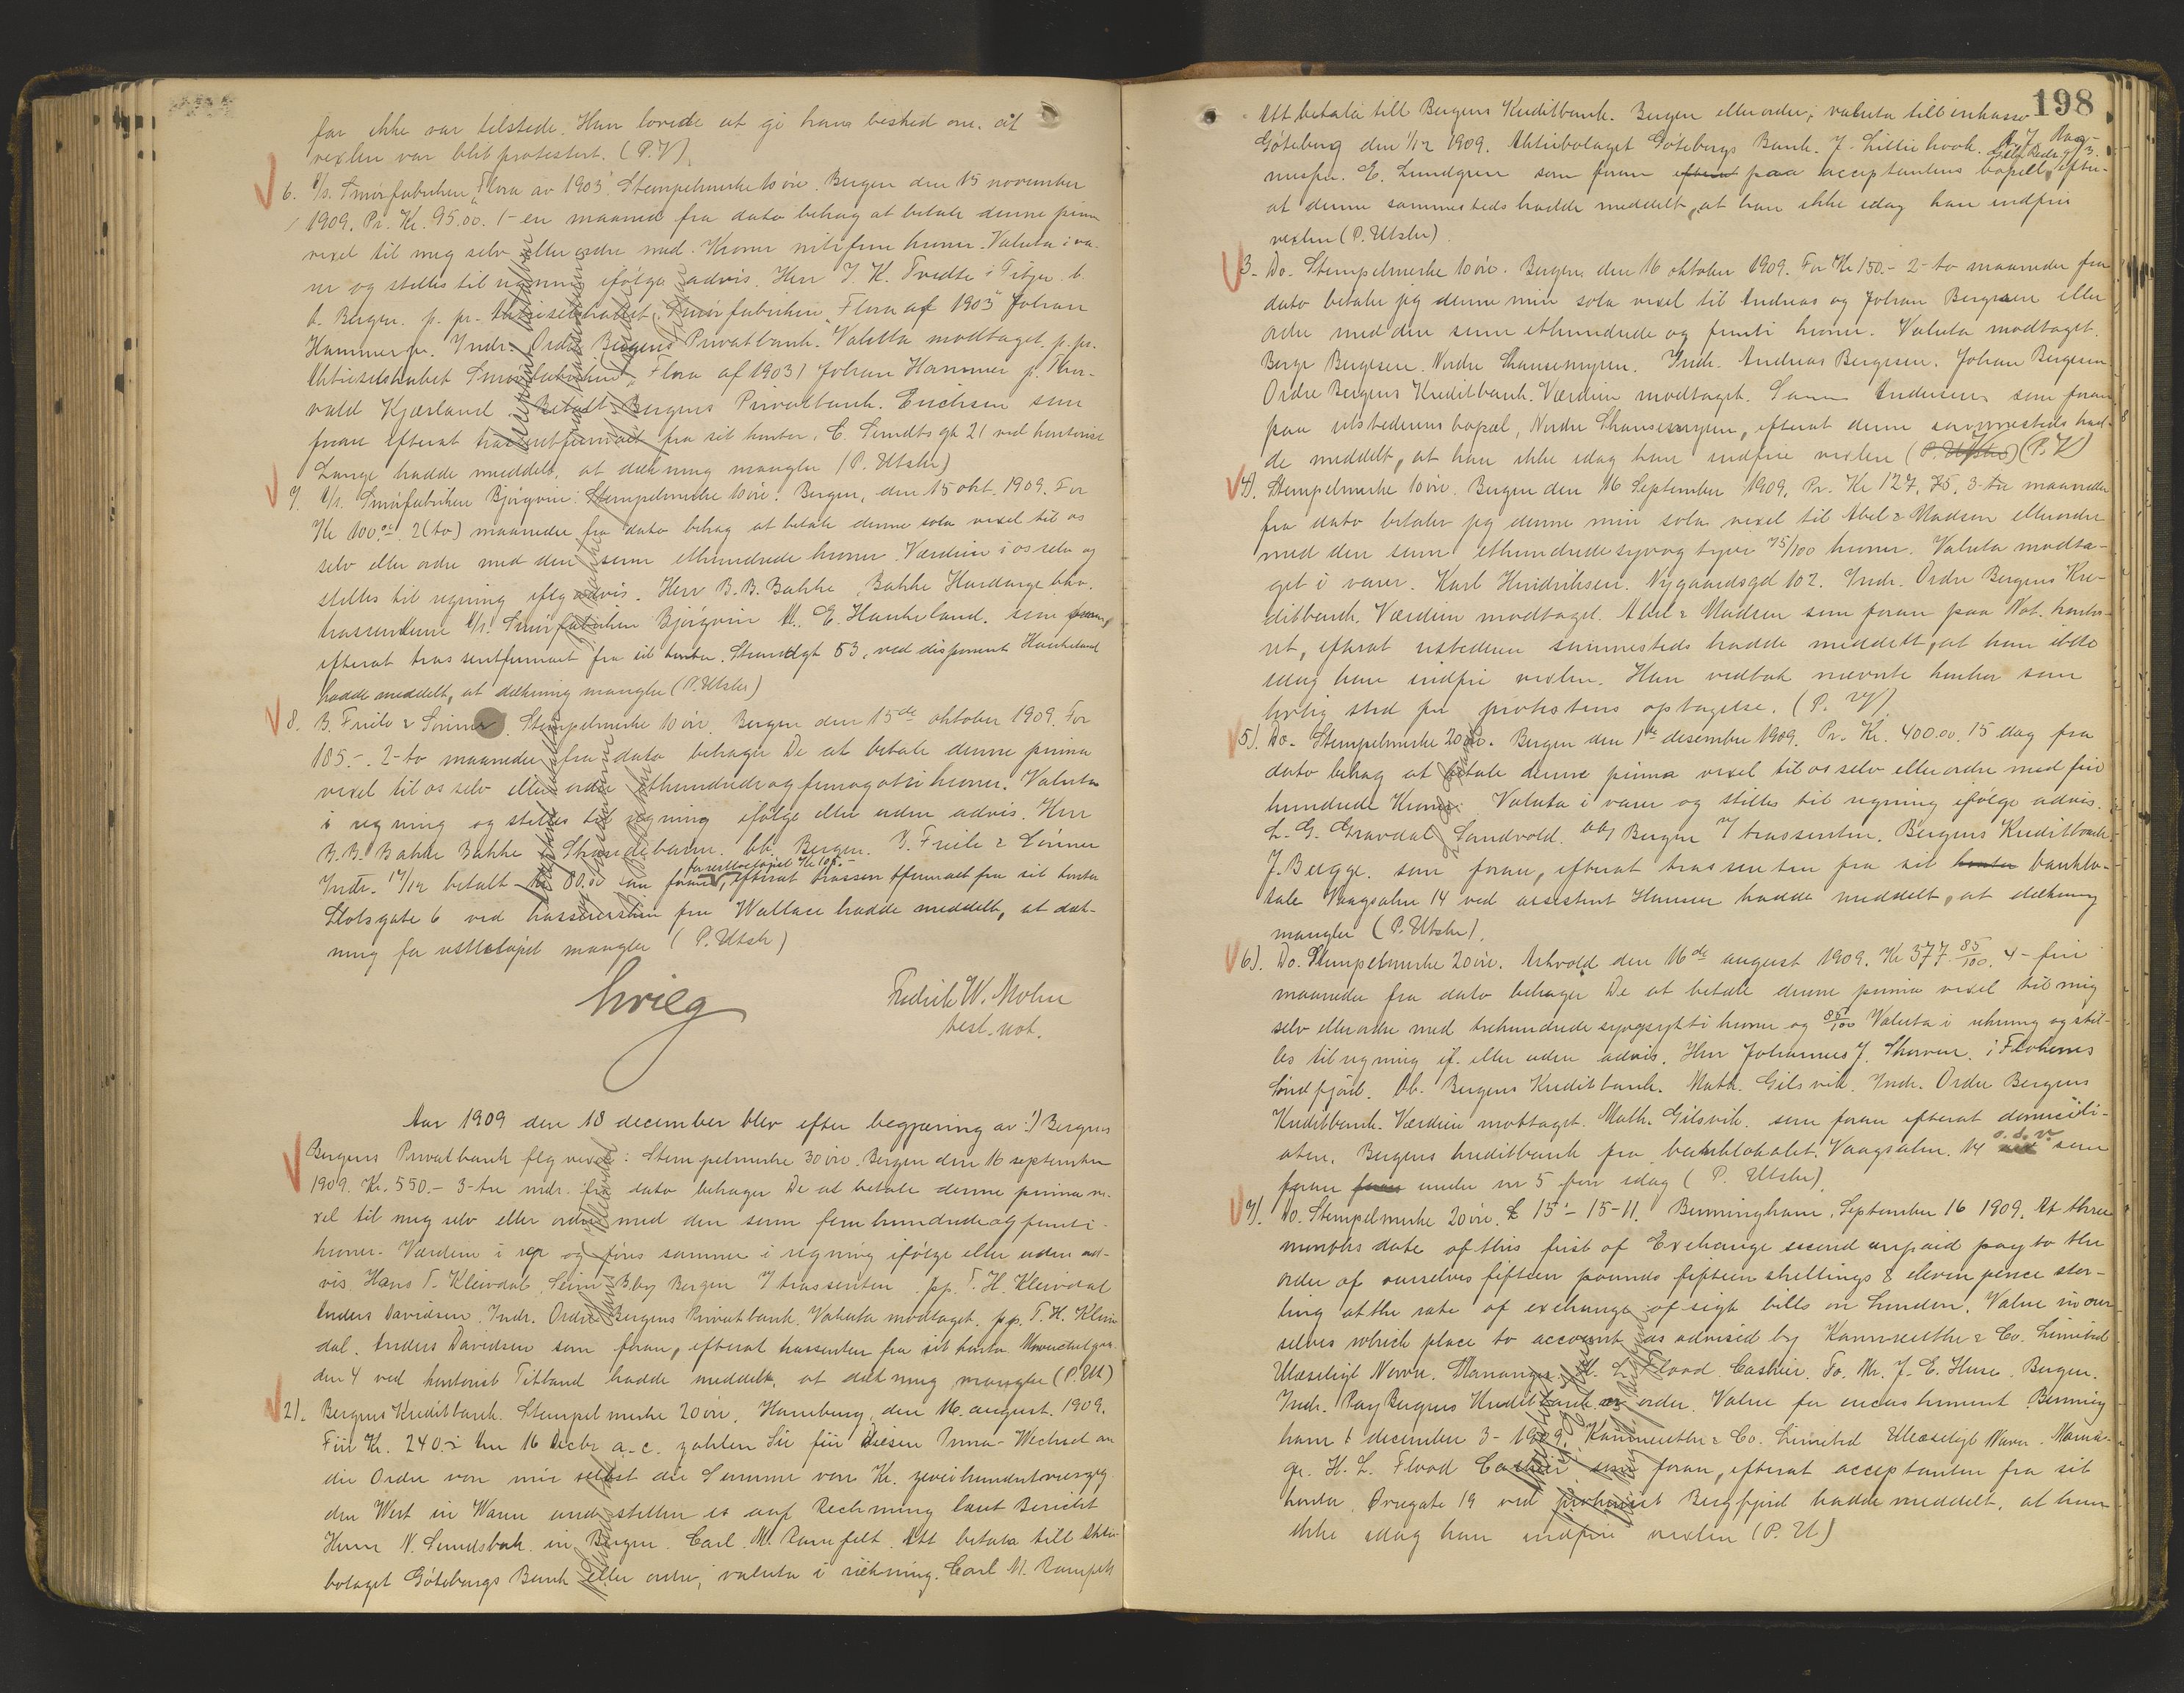 far ikke var tilstede. Han lovede at gi hans besked om, at
vexlen var blit protestert. (P.V)
6. A/s. Smørfabriken "Flora av 1903". Stempelmerke 10 øre. Bergen den 15 november
1909. Pr. Kr. 95.00. 1 - en maaned fra dato behag at betale denne prima
vexel til mig selv eller ordre med Kroner nitifem kroner. Valuta i va-
rer og stilles til regning ifølge advis. Herr J. K. Tvedte i Fitjer b.
b. Bergen. p. pr. Aktieselskabet Smørfabriken "Flora af 1903" Johan
Hammer jr. Indr. Ordre Bergens Privatbank. Valuta modtaget. p. pr.
Aktieselskabet Smørfabriken "Flora af 1903" Johan Hammer jr. Thor-
vald Kjærland. Betalt Bergens Privatbank. Erichsen som
foran efterat trassentfirmaet fra sit kontor, C. Sundts gt 21 ved kontorist
Lange hadde meddelt, at dækning mangler (P. Utslr)
7. A/s. Smørfabriken Bjørgvin: Stempelmerke 10 øre. Bergen, den 15 okt. 1909. For
Kr 100.00. 2 (to) maaneder fra dato behag at betale denne sola vexel til os
selv eller ordre med den sum ethundrede kroner. Værdien i os selv og
stilles til regning iflg advis. Herr B. B. Bakke, Bakke Hardanger
trassenterne A/s. Smørfabriken Bjørgvin M. E. Haukeland. som foran,
efterat trassentfirmaet fra sit kontor, Strandgt 53, ved disponent Haukeland
hadde meddelt, at dækning mangler (P. Utslr)
8. B. Friele & Sønner. Stempelmerke 10 øre. Bergen den 15de oktober 1909. For
185.-. 2-to maaneder fra dato behager De at betale denne prima
vexel til os selv eller ordre ethundredeogfemogotti kroner. Valuta
i regning og stilles til regning ifølge eller uden advis. Herr
B. B. Bakke Bakke Strandebarm. bb. Bergen. B. Friele & Sønner
for restbeløpet Kr 105.-
Indr. 17/12 betalt Kr 80.00 som foran, efterat trassentfirmaet fra sit kontor
Slotsgate 6 ved kassererskin frk Wallace hadde meddelt, at dæk-
ning for restbeløpet mangler (P. Utslr)
Grieg Fredrik W. Mohn
best. not.
Aar 1909 den 18 december blev efter begjæring av: 1) Bergens
Bergens Privatbank flg vexler: Stempelmerke 30 øre. Bergen den 16 september
1909. Kr. 550.- 3-tre mdr. fra dato behager De at betale denne prima ve-
xel til mig selv eller ordre med den sum femhundredeogfemti
kroner. Værdien i rgr og føres samme i regning ifølge eller uden ad-
vis Hans T. Kleivdal, Seim B by Bergen 7 trassenten. pp. T. H. Kleivdal
Anders Davidsen. Indr. Ordre Bergens Privatbank. Valuta modtaget. pp. T. H. Kleiv-
dal. Anders Davidsen som foran, efterat trassenten fra sit kontor
den 4 ved kontorist Titland hadde meddelt, at dækning mangler (P. Ut)
2). Bergens Kreditbank. Stempelmerke 20 øre. Hamburg, den 16. august. 1909.
Für Kr. 240.- Am 16 Decbr a. c. zahlen Sie für diesen Prima-Wechsel an
die Ordre von mir selbst die Summe von Kr. zweihundertvierzig
den Wert in Waren und stellen es auf Rechnung laut Bericht
Herrn N. Sundsbak in Bergen. Carl M. Ramfelt. Att betala till Aktie-
bolaget Göteborgs Bank eller ordre, valuta i räkning. Carl M. Ramfelt
198
Att betala till Bergens Kreditbank. Bergen eller order, valuta till inkasso
Göteborg den 1/12 1909. Aktiebolaget Göteborgs Bank. J. Lilliehöök.
E. Lundgren som foran efterat paa acceptantens bopæl, efter-
at denne sammesteds hadde meddelt, at han ikke idag kan indfri
vexlen (P. Utslr)
3. Do. Stempelmerke 10 øre. Bergen den 16 oktober 1909. For Kr 150.- 2-to maaneder fra
dato betaler jeg denne min sola vexel til Andreas og Johan Bergesen eller
ordre med den sum ethundrede og femti kroner. Valuta modtaget.
Berge Bergesen. Nordre Skansemyren. Indr. Andreas Bergesen. Johan Bergesen
Ordre Bergens Kreditbank. Værdien modtaget. Andersen som foran
paa utstederens bopæl, Nordre Skansemyren, efterat denne sammesteds had-
de meddelt, at han ikke idag kan indfrie vexlen (P. Utslr) (P. V)
4). Stempelmerke 10 øre. Bergen den 16 September 1909. Pr. Kr 127,75. 3-tre maaneder
fra dato betaler jeg denne min sola vexel til Abel & Madsen eller ordre
med den sum ethundredesyvogtyve 75/100 kroner. Valuta modta-
get i varer. Karl Hendriksen. Nygaardsgd 102. Indr. Ordre Bergens Kre-
ditbank. Værdien modtaget. Abel & Madsen som foran paa Not. konto-
ret, efterat utstederen sammesteds hadde meddelt, at han ikke
idag kan indfri vexlen. Han vedtok nævnte kontor som
lovlig sted for protestens optagelse. (P. V)
5). Do. Stempelmerke 20 øre. Bergen den 1ste desember 1909. Pr. Kr. 400.00. 15 dag fra
dato behag at betale denne prima vexel til os selv eller ordre med fire
hundrede Kroner. Valuta i varer og stilles til regning ifølge advis.
L. G. Gravdal, Sandvold. bby Bergen 7 trassenten. Bergens Kreditbank
J. Bügge. som foran, efterat trassenten fra sit kontor banklo-
kale Vaagsalm. 14 ved assistent Hansen hadde meddelt, at dækning
mangler (P. Utslr).
6). Do. Stempelmerke 20 øre. Askvold den 16de august 1909. Kr 377 85/100. 4-fire
maaneder fra dato behager De at betale denne prima vexel til mig
selv eller ordre med trehundredesyvogsytti kroner og 85/100 Valuta i rekning og stil-
les til regning if. eller uden advis. Herr Johannes J. Skorven. i Flokenes
Søndfjord. Ob. Bergens Kreditbank. Math. Gilsvik. Indr. Ordre Bergens
Kreditbank. Værdien modtaget. Math. Gilsvik. som foran efterat domicili-
aten. Bergens kreditbank fra banklokalet. Vaagsalm. 14 o. s. v. som
foran foran under nr 5 for idag (P. Utslr).
7). Do. Stempelmerke 20 øre. £ 15 - 15 - 11. Birmingham, September 16 1909. At three
months date of this first of Exchange second unpaid pay to the
order of ourselves fifteen pounds fifteen shillings & eleven pence ster-
ling at the rate of exchange of sigt bills on London. Value in our-
selves which place to account as advised by Kannreuther & Co. Limited
Ulæseligt Navn. Mananger. H. L. Flood Cashier. To. Mr. J. E. Huse. Bergen.
Indr. Pay Bergens Kreditbank or order. Value for encashment. Birming-
ham december 3 - 1909. Kannreuther & Co. Limited Ulæseligt Navn. Mana-
ger. H. L. Flood Cashier som foran, efterat acceptanten fra sit
kontor, Øvregate 19 ved Bergfjord hadde meddelt, at han
ikke idag kan indfrie vexlen (P. U)